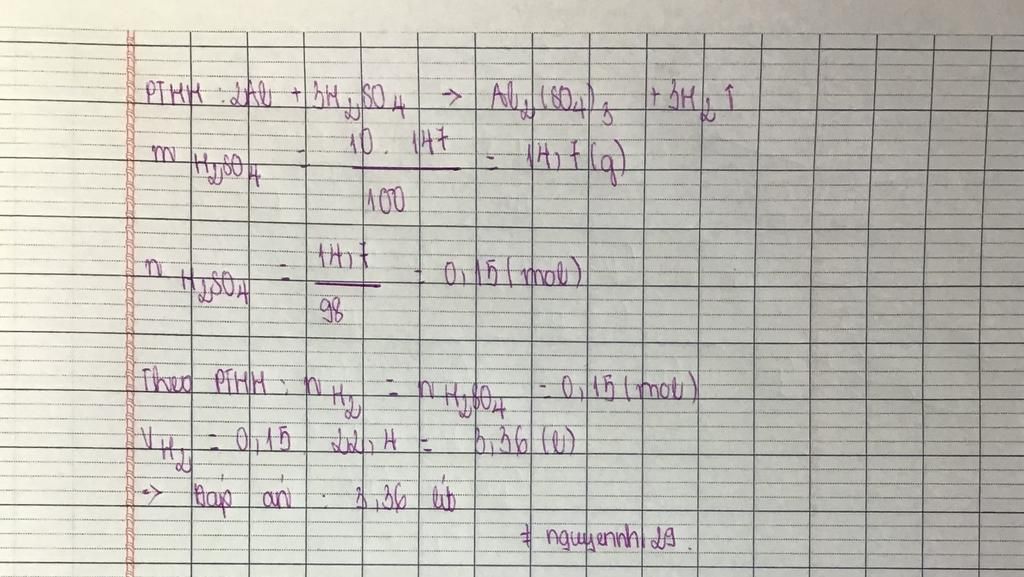 PTHH : 2Al + 3H₂SO₄ → Al₂(SO₄)₃ + 3H₂ ↑
m H₂SO₄ = 10 . 147 / 100 = 14,7 (g)
n H₂SO₄ = 14,7 / 98 = 0,15 (mol)
Theo PTHH : n H₂ = n H₂SO₄ = 0,15 (mol)
V H₂ = 0,15 22,4 = 3,36 (l)
=> Đáp án : 3,36 lít
# nguyennhi 29.